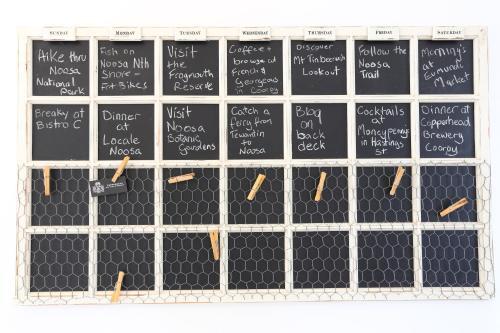 SUNDAY
Hike thru
Noosa
National
Park
MONDAY
Fish on
Noosa Nth
Shore -
Fat Bikes
TUESDAY
Visit
the
Frogmouth
Reserve
WEDNESDAY
Coffee +
browse at
French &
Georgeous
in Cooroy
THURSDAY
Discover
Mt Tinbeerwah
Lookout
FRIDAY
Follow the
Noosa
Trail
SATURDAY
Morning's
at
Eumundi
Market
Breaky at
Bistro C
Dinner
at
Locale
Noosa
Visit
Noosa
Botanic
Gardens
Catch a
ferry from
Tewantin
to
Noosa
BBQ
on
back
deck
Cocktails
at
Moneypenny
in Hastings
St
Dinner at
Copperhead
Brewery
Cooroy